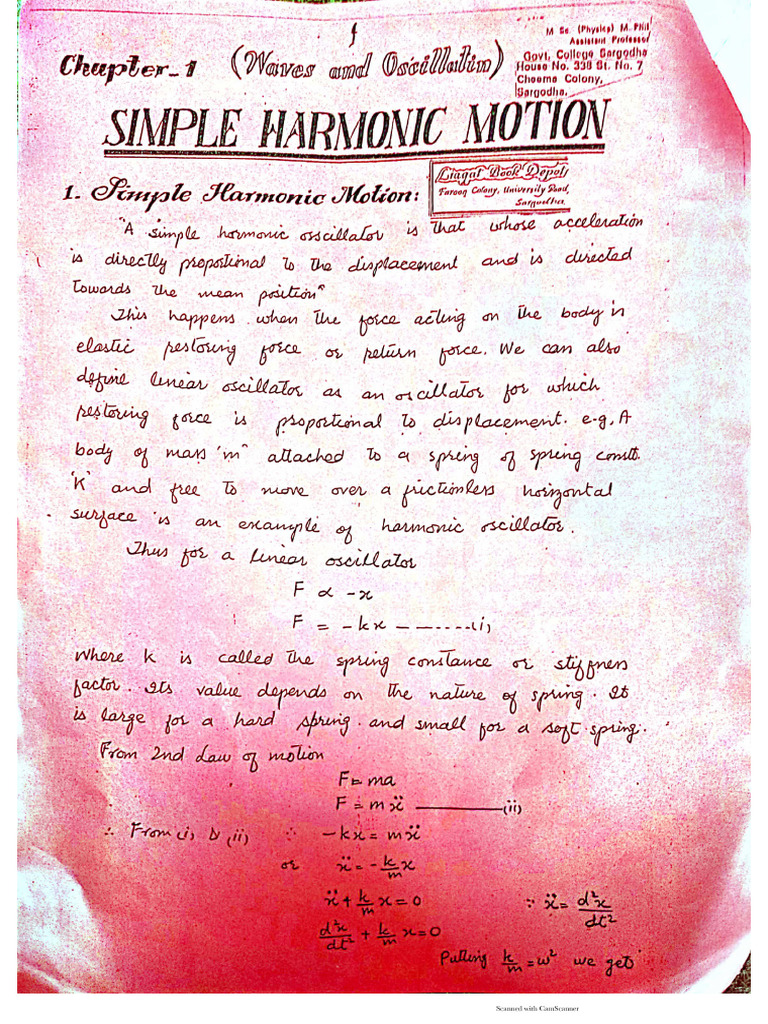 M Sc. (Physics) M. Phil
Assistant Professor
Chapter-1 (Waves and Oscillatin)
Govt. College Sargodha
House No. 338 St. No. 7
Cheema Colony,
Sargodha.
SIMPLE HARMONIC MOTION
Liaqat Book Depot
Farooq Colony, University Road,
Sargodha
1. Simple Harmonic Motion:
"A simple hormonic osscillator is that whose acceleration
is directly proportional to the displacement and is directed
towards the mean position"
This happens when the force acting on the body is
elastic restoring force or return force. We can also
define linear oscillator as an oscillator for which
restoring force is proportional to displacement. e.g, A
body of mass 'm" attached to a spring of spring constt.
'K' and free to move over a frictionless horizontal
surface is an example of harmonic oscillator.
Thus for a linear oscillator
F ∝ -x
F = -kx -------(i)
Where k is called the spring constance or stiffness
factor. Its value depends on the nature of spring. It
is large for a hard spring and small for a soft spring.
From 2nd Law of motion
F = ma
F = mẍ ———(ii)
∴ From (i) & (ii) ∵ -kx = mẍ
or ẍ = -k/m x
ẍ + k/m x = 0 ∵ ẍ = d²x/dt²
d²x/dt² + k/m x = 0
Putting k/m = ω² we get
Scanned with CamScanner